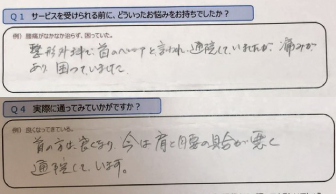 Q1 サービスを受けられる前に、どういったお悩みをお持ちでしたか?
例）腰痛がなかなか治らず、困っていた。
整形外科で首のヘルニアと言われ、通院していましたが 痛みが
あり 困っていました
Q4 実際に通ってみていかがですか?
例）良くなってきている。
首の方は良くなり、今は肩と腰の具合が悪く
通院しています。